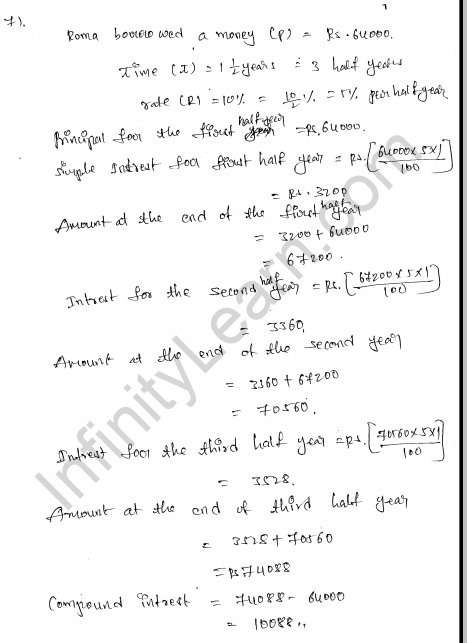 7).
Roma borrowed a money (P) = Rs. 64000.
Time (T) = 1 1/2 years = 3 half years
rate (R) = 10% = 10/2 % = 5% per half year
Principal for the first half year = Rs, 64000.
Simple Interest for first half year = Rs. [64000 x 5 x 1 / 100]
= Rs. 3200
Amount at the end of the first half year
= 3200 + 64000
= 67200.
Intrest for the second half year = Rs. [67200 x 5 x 1 / 100]
= 3360.
Amount at the end of the second year
= 3360 + 67200
= 70560.
Intrest for the third half year = Rs. [70560 x 5 x 1 / 100]
= 3528.
Amount at the end of third half year
= 3528 + 70560
= Rs 74088
Compound intrest = 74088 - 64000
= 10088 ,,
InfinityLearn.com